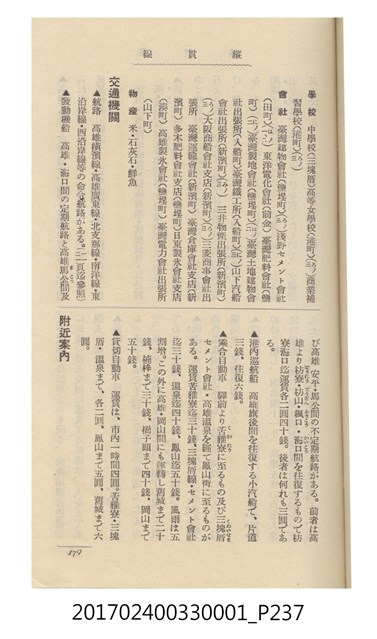 縱貫線
學校 中學校(三塊厝)高等女學校(港町)(二ノ)商業補
習學校(港町)(三ノ)
會社 臺灣建物會社(鹽埕町)(五ノ)淺野セメント會社
(田町)(一ノ)東洋電化會社(前金)臺灣肥料會社(鹽埕
町)臺灣製地會社(鹽埕町)臺灣土地建物會
社出張所(入船町)臺灣鐵工所(入船町)山下汽船
會社出張所(新濱町)三井物產出張所(新濱町)
大阪商船會社支店(新濱町)三菱商事會社出
張所(新濱町)臺灣運輸會社(新濱町)臺灣倉庫會社支店(新
濱町)多木肥料會社支店(鹽埕町)日東製氷會社
(湊町)高雄製氷會社(鹽埕町)臺灣電力會社出張所
(山下町)
物產 米・石灰石・鮮魚
交通機關
▲航路 高雄橫濱線・高雄廣東線・北支那線・南洋線・東
沿岸線・西沿岸線等の命令航路がある。(二一頁迄參照)
▲發動機船 高雄・海口間の定期航路と高雄馬公間及
び高雄、安平・馬公間の不定期航路がある。前者は高
雄より枋寮・枋山・楓口・海口間を往復するもので枋
寮海口迄運賃各二圓四十錢。後者は何れも三圓であ
る。
▲港內巡航船 高雄旗後間を往復する小汽船で、片道
三錢、往復六錢。
▲乘合自動車 驛前より苦雅寮に至るもの及び三塊厝
セメント會社・高雄溫泉を經て鳳山街に至るものが
ある。運賃苦雅寮迄三十錢、三塊厝線・セメント會社
迄三十錢、溫泉迄四十錢、鳳山迄五十錢。風雨は五
割增。この外に高雄・岡山間にも運轉し舊城まで二十
錢、楠梓まで三十錢、橋子頭まで四十錢、岡山まで
五十錢。
▲貸切自動車 運賃は、市內一時間四圓。苦雅寮・三塊
厝・溫泉まで、各二圓、鳳山まで五圓、舊城まで六
圓。
附近案內
179
201702400330001_P237